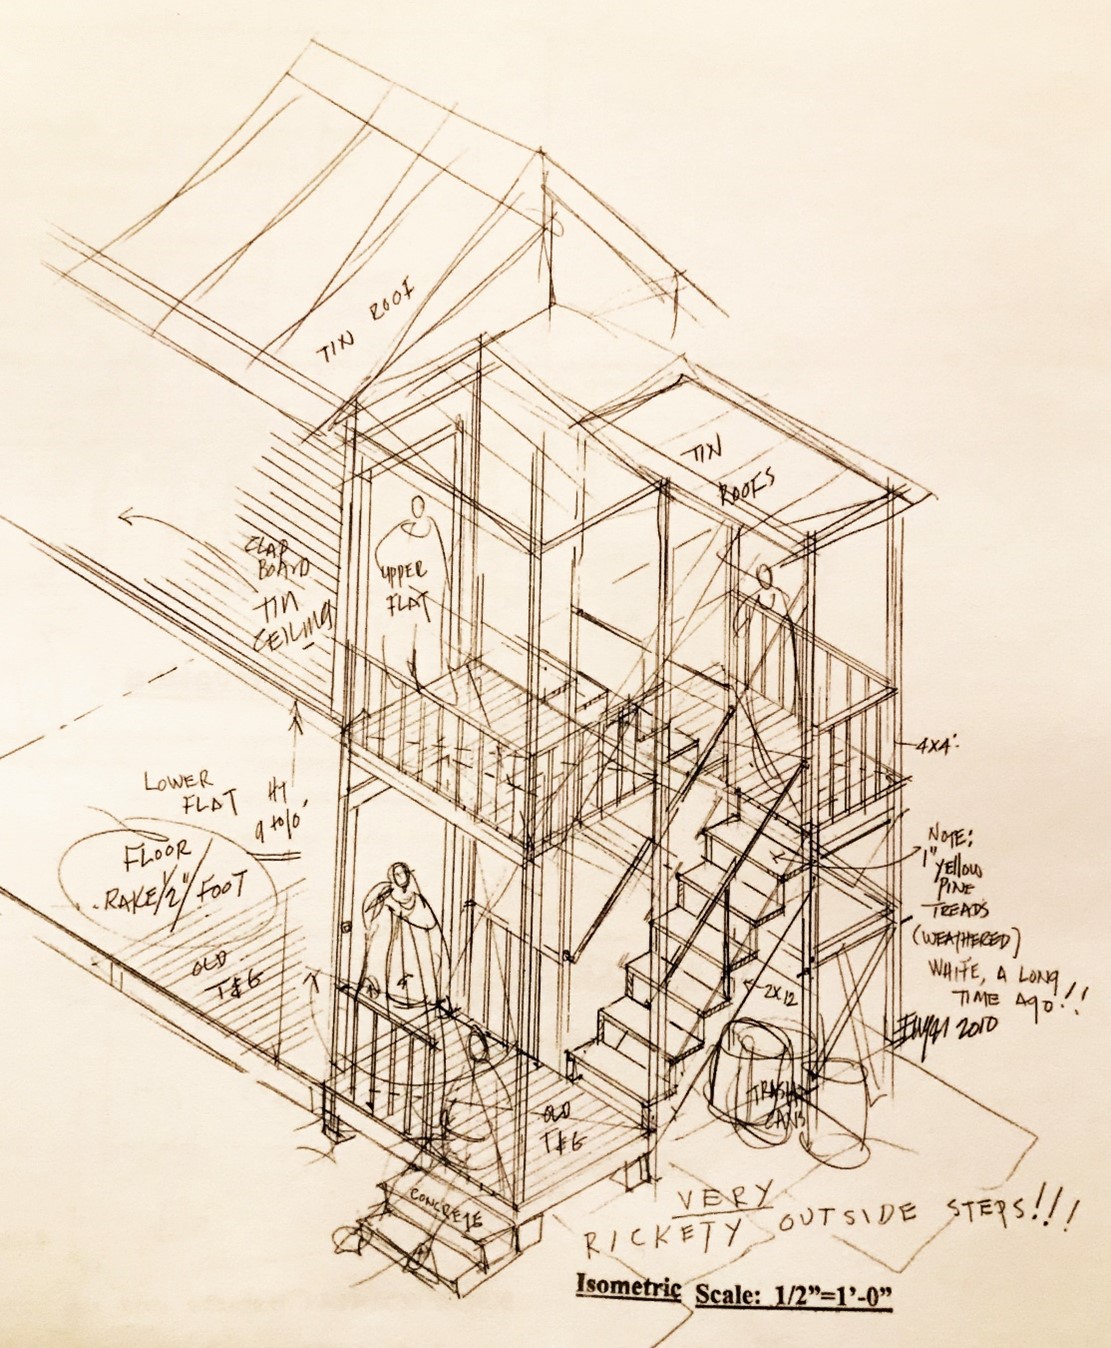 TIN ROOF
TIN
ROOFS
CLAP
BOARD
TIN
CEILING
UPPER
FLAT
4X4'
LOWER
FLAT
HT
9 to 10'
FLOOR
RAKE 1/2"/FOOT
OLD
T&G
NOTE:
1" YELLOW
PINE
TREADS
(WEATHERED)
WHITE, A LONG
TIME AGO!!
2010
2X12
TRASH
CANS
OLD
T&G
CONCRETE
VERY
RICKETY OUTSIDE STEPS!!!
Isometric Scale: 1/2"=1'-0"